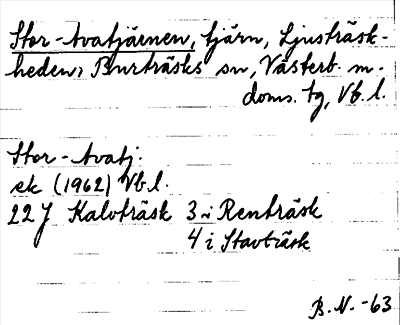 Stor-tvatjärnen, tjärn, Ljusträsk-
heden, Burträsks sn, Västerb. m.
doms. tg, Vb. l.
Stor-tvatj.
ek (1962) Vb l.
22 J Kalvträsk 3 i Renträsk
4 i Stavträsk
B. N. -63